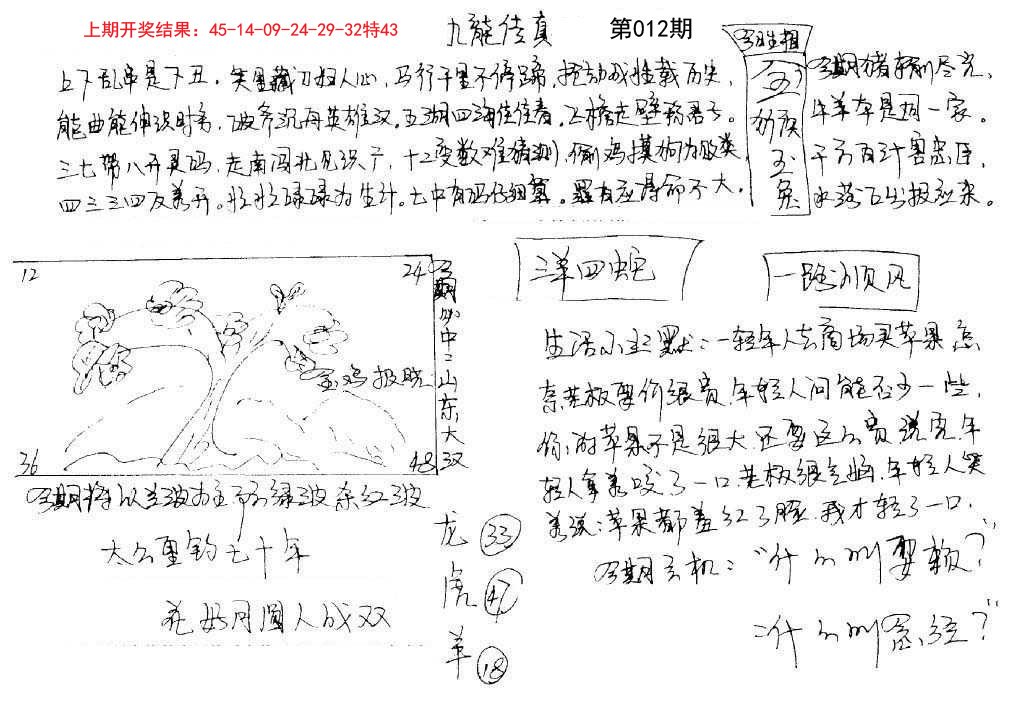 上期开奖结果：45-14-09-24-29-32特43
九龍传真
第012期
今期生肖相
上下乱串是下丑。笑里藏刀妇人心，马行千里不停蹄，
能曲能伸识时务，破釜沉舟英雄汉。五湖四海任住着。飞檐走壁
三七带八开灵码，走南闯北见识广，十二变数难猜测，偷鸡摸狗为
四三三四反着开。忙忙碌碌为生计。七中有码仔细算。
玉兔
今期猪
牛羊本是同一家。
千方百计害忠臣，
水落石出报应来。
12
24
36
48
金鸡报晓
今期必中二山东大汉
三羊四蛇
一路顺风
生活小幽默：一轻年人去商场买苹果，怎
奈老板要价很贵，年轻人问能否少一些，
你的苹果不是很大，还要这么贵，说完，年
轻人拿着咬了一口，老板很气恼，年轻人笑
着说：苹果都羞红了脸，我才轻了一口，
今期玄机："什么叫耍赖？"
"什么叫
太公垂钓七十年
花好月圆人成双
龙 33
虎 47
羊 18